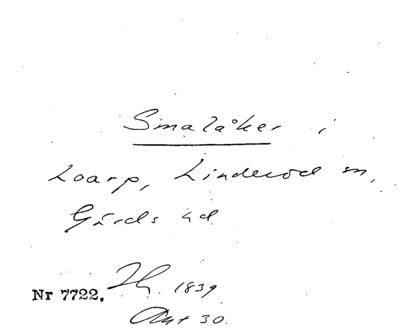 Smalåker i
Loarp, Linderöd sn,
Gärds hd
Nr 7722. 1839
Akt 30.